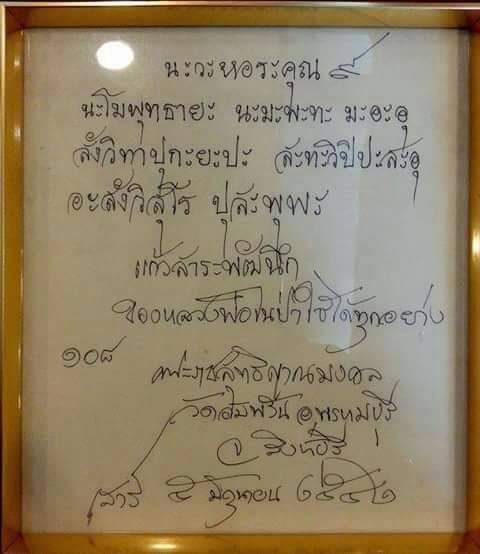 นะวะหอระคุณ ๙
นะโมพุทธายะ นะมะพะทะ มะอะอุ
สังวิทาปุกะยะปะ สะทะวิปิปะสะอุ
อะสังวิสุโร ปุสะพุพะ
แก้วสาระพัฒนึก
ของหลวงพ่อในป่าใช้ได้ทุกอย่าง
๑๐๘
พระราชสุทธิญาณมงคล
วัดอัมพวัน อ.พรหมบุรี
จ. สิงห์บุรี
เสาร์ ๕ มิถุนายน